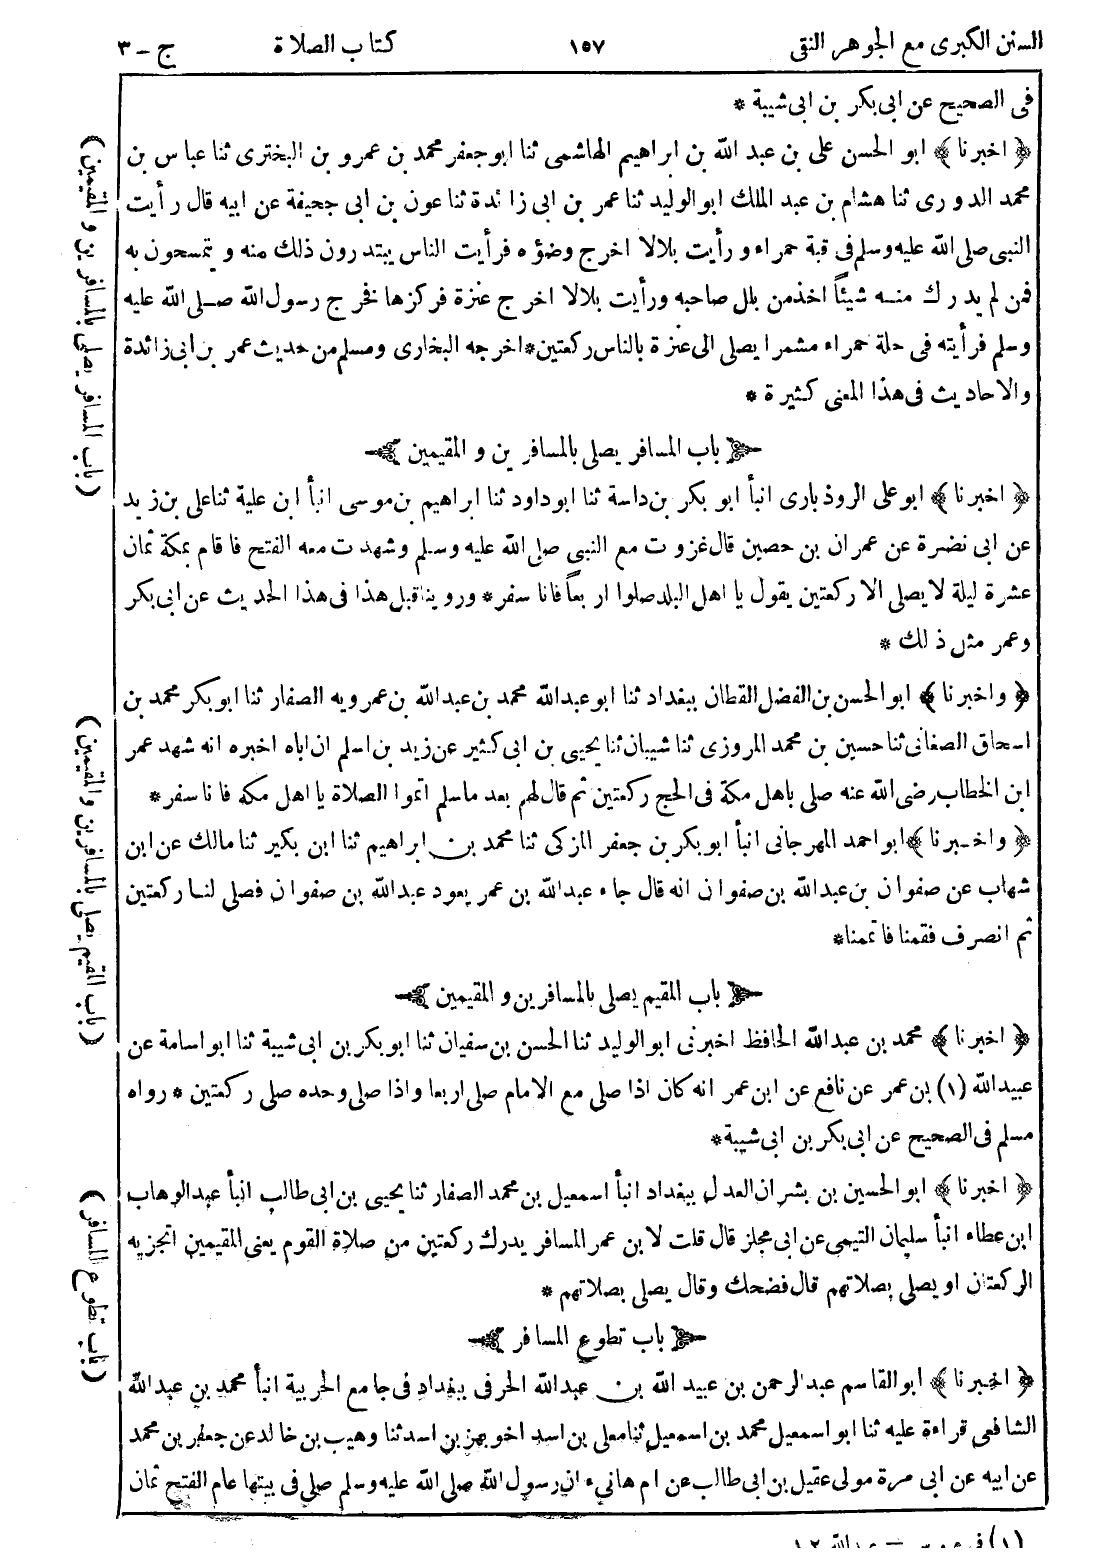 السنن الكبرى مع الجوهر النقى ١٥٧ كتاب الصلاة ج – ٣
فى الصحيح عن ابى بكر بن ابى شيبة *
﴿ اخبرنا ﴾ ابو الحسن على بن عبد الله بن ابراهيم الهاشمى ثنا ابوجعفر محمد بن عمرو بن البخترى ثنا عباس بن
محمد الدورى ثنا هشام بن عبد الملك ابو الوليد ثنا عمر بن ابى زائدة ثنا عون بن ابى جحيفة عن ابيه قال رأيت
النبى صلى الله عليه وسلم فى قبة حمراء ورأيت بلالا اخرج وضوءه فرأيت الناس يبتدرون ذلك منه ويتمسحون به
فمن لم يدرك منه شيئاً اخذ من بلل صاحبه ورأيت بلالا اخرج عنزة فركزها فخرج رسول الله صلى الله عليه
وسلم فرأيته فى حلة حمراء مشمرا يصلى الى عنزة بالناس ركعتين * اخرجه البخارى ومسلم من حديث عمر بن ابى زائدة
والاحاديث فى هذا المعنى كثيرة *
باب المسافر يصلى بالمسافرين والمقيمين
﴿ اخبرنا ﴾ ابو على الروذبارى انبأ ابو بكر بن داسة ثنا ابو داود ثنا ابراهيم بن موسى انبأ ابن علية ثنا على بن زيد
عن ابى نضرة عن عمران بن حصين قال غزوت مع النبى صلى الله عليه وسلم وشهدت معه الفتح فاقام بمكة ثمان
عشرة ليلة لا يصلى الا ركعتين يقول يا اهل البلد صلوا اربعاً فانا سفر * وروينا قبل هذا فى هذا الحديث عن ابى بكر
وعمر مثل ذلك *
﴿ واخبرنا ﴾ ابو الحسن بن الفضل القطان ببغداد ثنا ابو عبد الله محمد بن عبد الله بن عمرويه الصفار ثنا ابو بكر محمد بن
اسحاق الصغانى ثنا حسين بن محمد المروزى ثنا شيبان ثنا يحيى بن ابى كثير عن زيد بن اسلم ان اباه اخبره انه شهد عمر
ابن الخطاب رضى الله عنه صلى باهل مكة فى الحج ركعتين ثم قال لهم بعد ماسلم اتموا الصلاة يا اهل مكة فانا سفر *
﴿ واخبرنا ﴾ ابو احمد المهرجانى انبأ ابو بكر بن جعفر المزكى ثنا محمد بن ابراهيم ثنا ابن بكير ثنا مالك عن ابن
شهاب عن صفوان بن عبد الله بن صفوان انه قال جاء عبد الله بن عمر يعود عبد الله بن صفوان فصلى لنا ركعتين
ثم انصرف فقمنا فاتممنا *
باب المقيم يصلى بالمسافرين والمقيمين
﴿ اخبرنا ﴾ محمد بن عبد الله الحافظ اخبرنى ابو الوليد ثنا الحسن بن سفيان ثنا ابو بكر بن ابى شيبة ثنا ابو اسامة عن
عبيد الله (١) بن عمر عن نافع عن ابن عمر انه كان اذا صلى مع الامام صلى اربعا واذا صلى وحده صلى ركعتين * رواه
مسلم فى الصحيح عن ابى بكر بن ابى شيبة *
﴿ اخبرنا ﴾ ابو الحسين بن بشران العدل ببغداد انبأ اسمعيل بن محمد الصفار ثنا يحيى بن ابى طالب انبأ عبد الوهاب
ابن عطاء انبأ سليمان التيمى عن ابى مجلز قال قلت لابن عمر المسافر يدرك ركعتين من صلاة القوم يعنى المقيمين اتجزيه
الركعتان او يصلى بصلاتهم قال فضحك وقال يصلى بصلاتهم *
باب تطوع المسافر
﴿ اخبرنا ﴾ ابو القاسم عبد الرحمن بن عبيد الله بن عبد الله الحرفى ببغداد فى جامع الحربية انبأ محمد بن عبد الله
الشافعى قراءة عليه ثنا ابو اسمعيل محمد بن اسمعيل ثنا معلى بن اسد اخو بهز بن اسد ثنا وهيب بن خالد عن جعفر بن محمد
عن ابيه عن ابى مرة مولى عقيل بن ابى طالب عن ام هانىء ان رسول الله صلى الله عليه وسلم صلى فى بيتها عام الفتح ثمان
(باب المسافر يصلى بالمسافرين والمقيمين)
(باب المقيم يصلى بالمسافرين والمقيمين)
(باب تطوع المسافر)